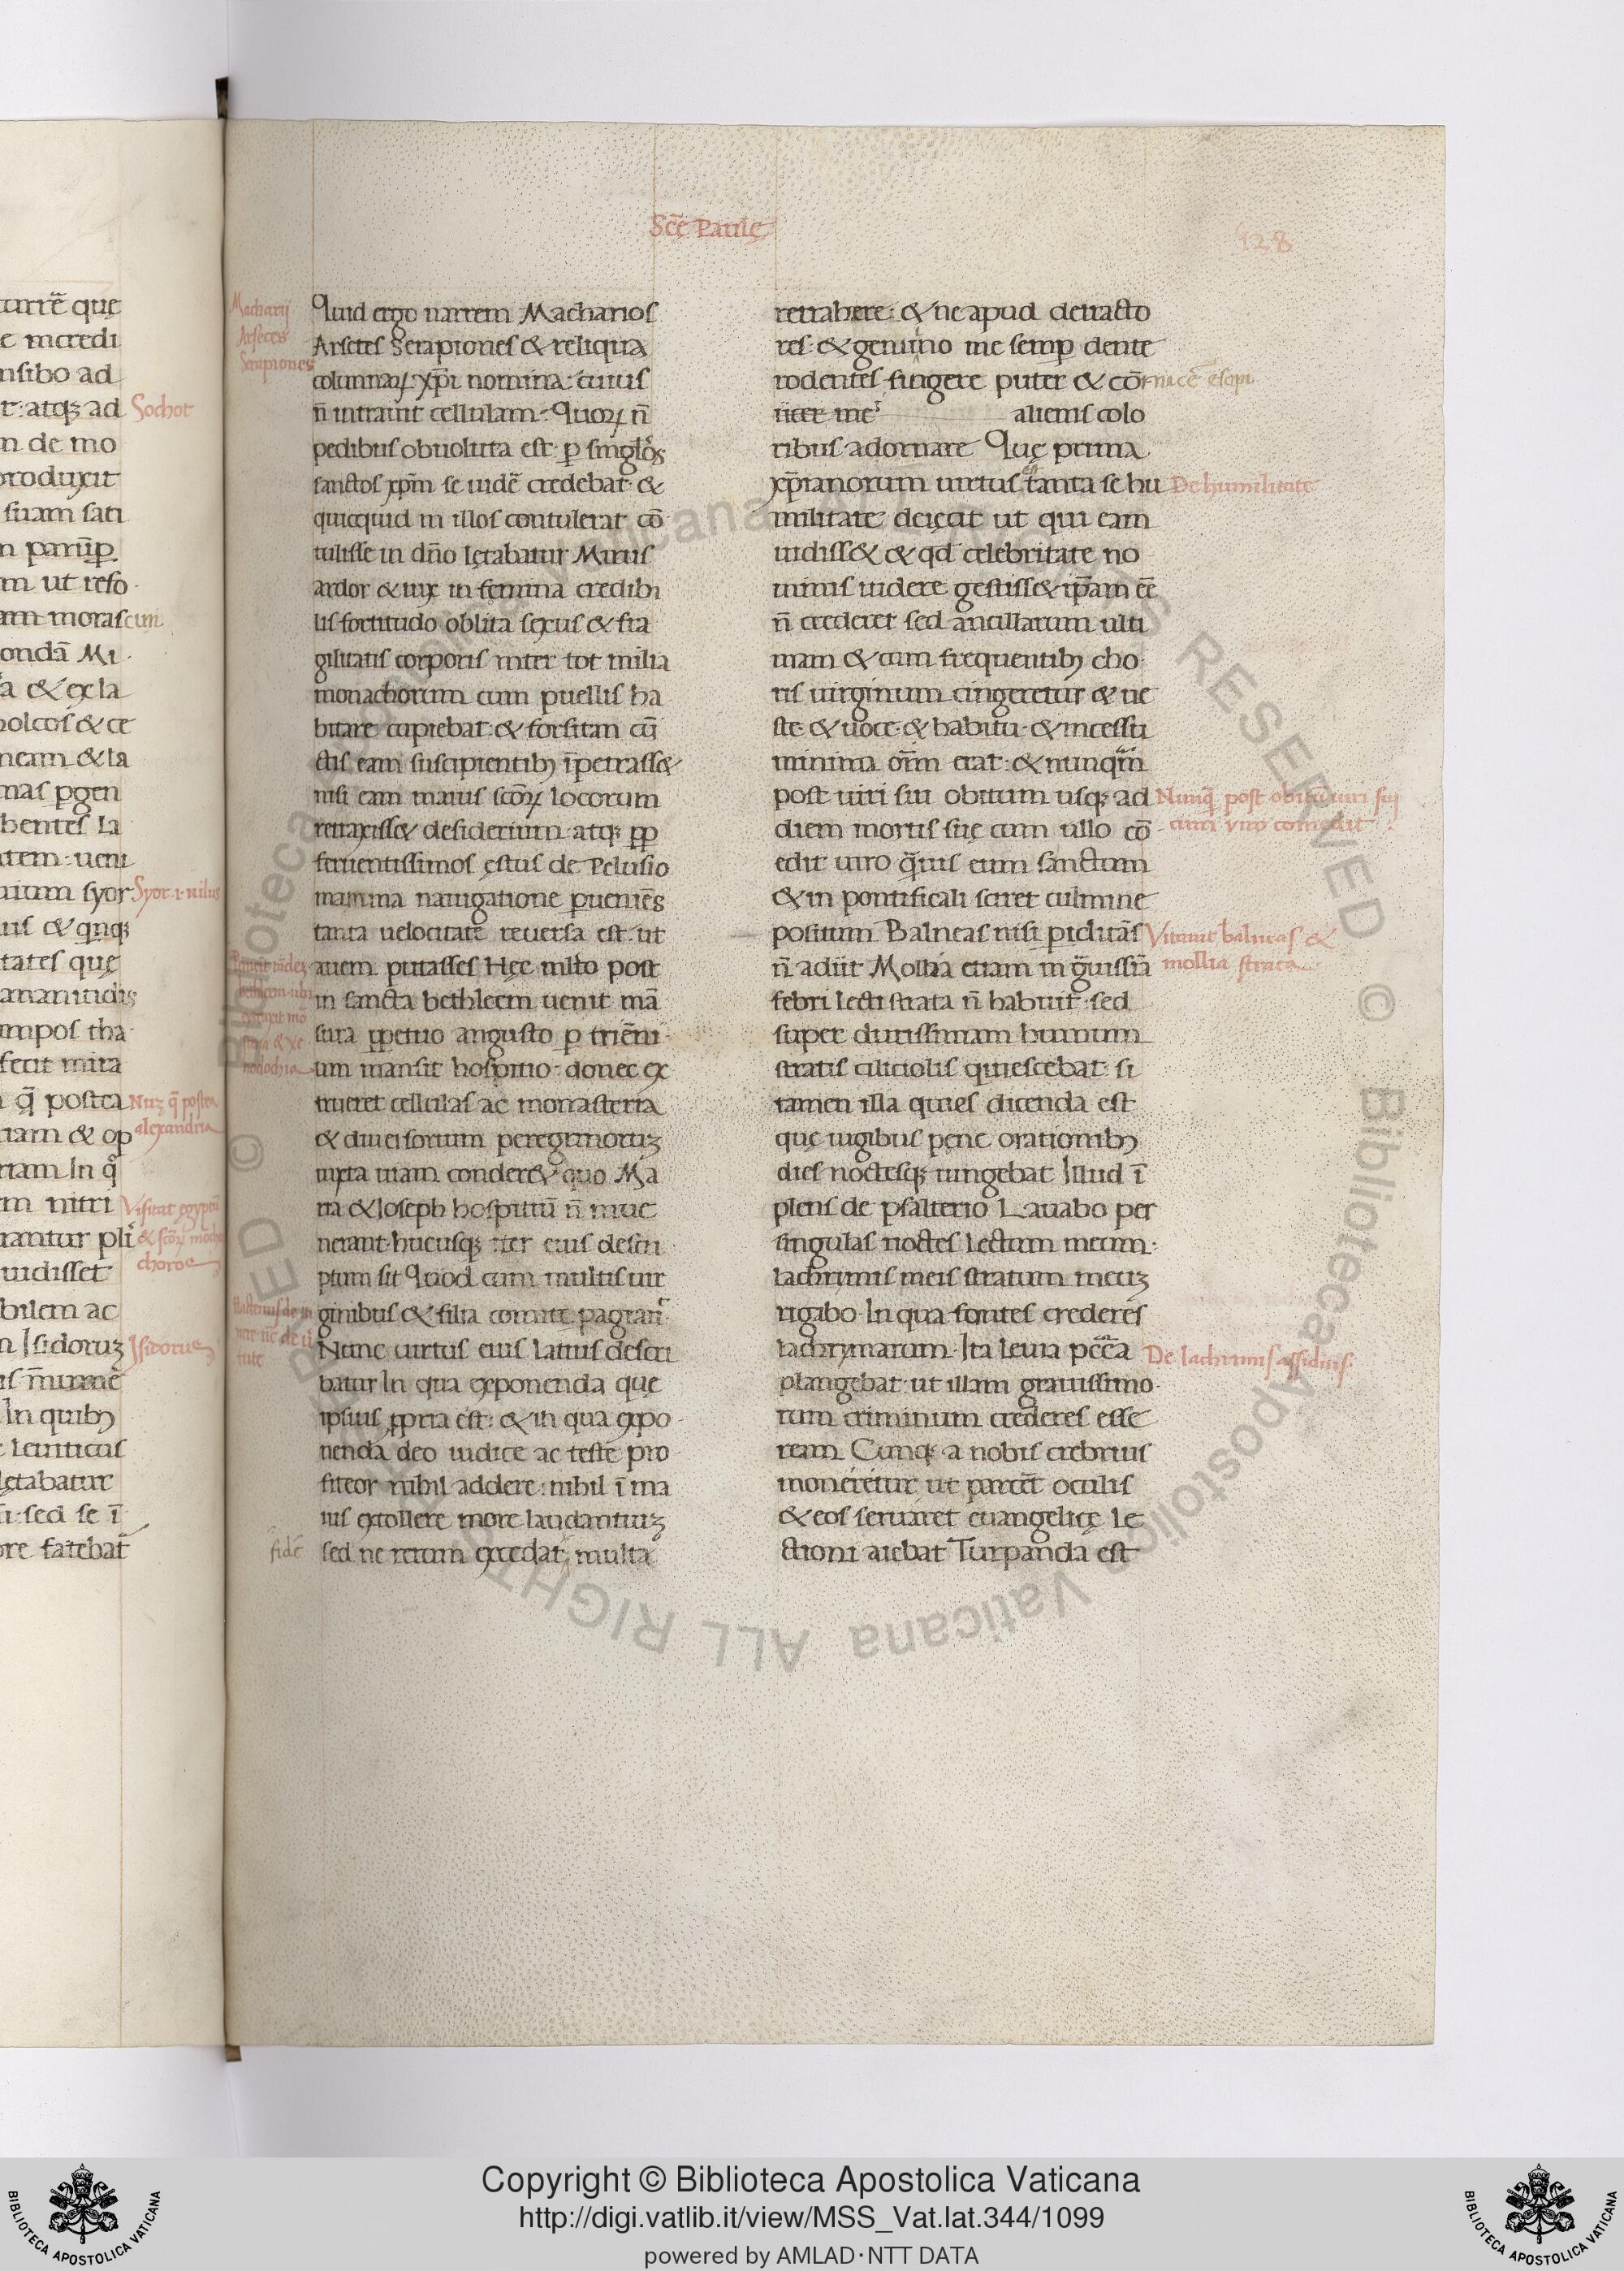 Scē Paulę
128
turrē que
c incredi
nsibo ad
t: atqʒ ad
n de mo
produxit
suam sati
n parūp̱
m ut reso
am moras
ondā Mi
a & excla
holcos & ce
neam & la
nas pgen
bentes la
tem: ueni
uium syor
uis & qnqʒ
tates que
anan iudis
ampos tha
fecit mira
q̄ postea
riam & op
riam In q̄
em nitri
rantur pli
uidisset
bilem ac
n Isidoruʒ
is mumē
In quibꝫ
leuiticus
lętabatur
i: sed se ī
ore fatebat̄
cum
Sochot
Syor .i. nilus
Nuʒ q̄ postea
alexandria
Visitat egyptū
choros
Isidorus
Macharij
Arseces
Serapiones
Quid ergo narrem Macharios
Arsetes Serapiones & reliqua
columnaꝝ xp̄i nomina: cuius
n̄ intrauit cellulam. Quoꝝ n̄
pedibus obuoluta est: p singlos
sanctos xpm̄ se uidē credebat: &
quicquid in illos contulerat cō
tulisse in dn̄o lętabatur Mirus
ardor & uix in femina credibi
lis fortitudo oblita sexus & fra
gilitatis corporis inter tot milia
monachorum cum puellis ha
bitare cupiebat: & forsitan cū
ctis eam suscipientibꝫ īpetrass&
nisi eam maius scōꝝ locorum
retraxiss& desiderium atqʒ pp
feruentissimos ęstus de Pelusio
maiuma nauigatione pueniēs
tanta uelocitate reuersa est: ut
auem putasses Hęc mlto post
in sancta bethleem uenit mā
sura ppetuo angusto p triēni
um mansit hospitio: donec ex
trueret cellulas ac monasteria
& diuersorium peregrinoruʒ
iuxta uiam conder& quo Ma
ria & Ioseph hospitiū n̄ inue
nerant. hucusqʒ iter eius descri
ptum sit Quod cum multis uir
ginibus & filia comite pagrauit
Nunc uirtus eius latius descri
batur In qua exponenda que
ipsius ppria est: & in qua expo
nenda deo iudice ac teste pro
fiteor nihil addere: nihil ī ma
ius extollere more laudantiuʒ
sed ne rerum excedat multa
fidē
retrahere: & ne apud detracto
res: & genuino me semp dente
rodentes fingere puter & cor
nicē esopi
nicer me alienis colo
ribus adornare Quę prima
xp̄ianorum uirtus est tanta se hu
militate deiecit ut qui eam
uidiss& & qd celebritate no
minis uidere gestiss& ip̄am eē
n̄ crederet sed ancillarum ulti
mam & cum frequentibꝫ cho
ris uirginum cingeretur & ue
ste & uoce & habitu & incessu
minima om̄m erat: & nunqm̄
post uiri sui obitum usqʒ ad
diem mortis suę cum ullo cō
edit uiro q̄uis eum sanctum
& in pontificali sciret culmine
positum Balneas nisi piclitās
n̄ adiit Mollia etiam in grauissīa
febri lecti strata n̄ habuit: sed
super durissimam humum
stratis ciliciolis quiescebat: si
tamen illa quies dicenda est
que iugibus pęne orationibꝫ
dies noctesqʒ iungebat Illud ī
plens de psalterio Lauabo per
singulas noctes lectum meum:
lachrimis meis stratum meuʒ
rigabo. In qua fontes crederes
lachrymarum. Ita leuia pccā
plangebat: ut illam grauissimo
rum criminum crederes esse
ream Cumqʒ a nobis crebrius
moneretur ut parcet oculis
& eos seruaret euangelice le
ctioni aiebat Turpanda est
De humilitate
Nunq̄ post obitū uiri sui
cum viro comedit
Vitauit balneas &
mollia strata
De lachrimis assiduis
Copyright © Biblioteca Apostolica Vaticana
http://digi.vatlib.it/view/MSS_Vat.lat.344/1099
powered by AMLAD·NTT DATA
BIBLIOTECA APOSTOLICA VATICANA
BIBLIOTECA APOSTOLICA VATICANA